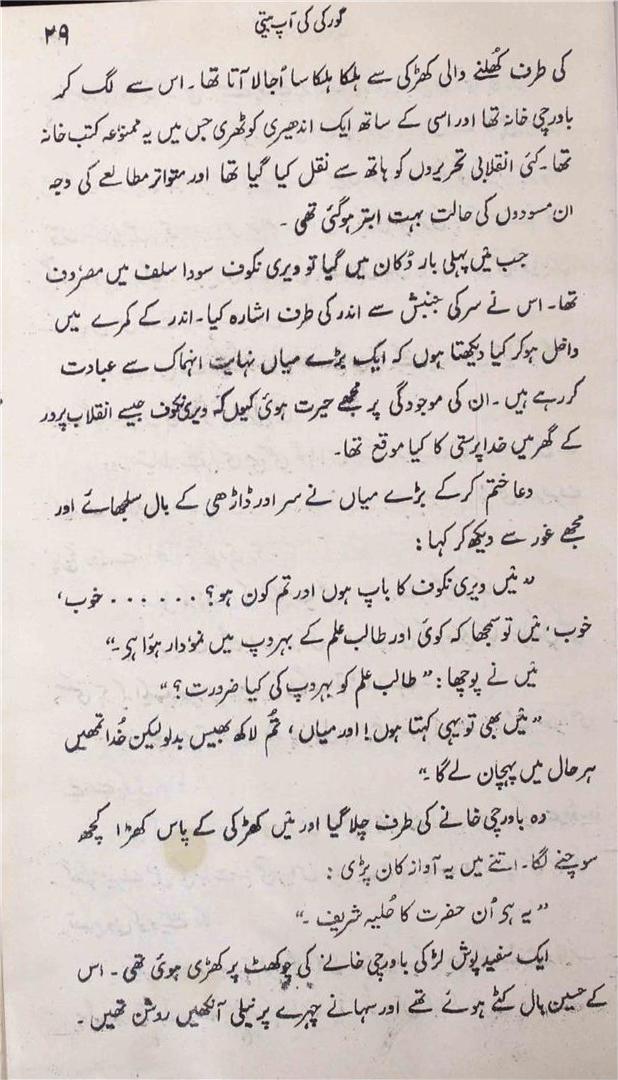 ۲۹
گورکی کی آپ بیتی
کی طرف کُھلنے والی کھڑکی سے ہلکا ہلکا سا اُجالا آتا تھا۔ اس سے لگ کر
باورچی خانہ تھا اور اسی کے ساتھ ایک اندھیری کوٹھری جس میں یہ ممنوعہ کتب خانہ
تھا۔ کئی انقلابی تحریروں کو ہاتھ سے نقل کیا گیا تھا اور متواتر مطالعے کی وجہ
ان مسودوں کی حالت بہت ابتر ہوگئی تھی ۔
جب مَیں پہلی بار دُکان میں گیا تو ویری نکوف سودا سلف میں مصروف
تھا۔ اس نے سر کی جنبش سے اندر کی طرف اشارہ کیا۔ اندر کے کمرے میں
داخل ہوکر کیا دیکھتا ہوں کہ ایک بڑے میاں نہایت انہماک سے عبادت
کر رہے ہیں ۔ ان کی موجودگی پر مجھے حیرت ہوئی کیوں کہ ویری نکوف جیسے انقلاب پرور
کے گھر میں خدا پرستی کا کیا موقع تھا۔
دعا ختم کرکے بڑے میاں نے سر اور ڈاڑھی کے بال سلجھائے اور
مجھے غور سے دیکھ کر کہا :
”مَیں ویری نکوف کا باپ ہوں اور تم کون ہو ؟ . . . . . . خوب،
خوب، مَیں تو سمجھا کہ کوئی اور طالب علم کے بہروپ میں نمودار ہوا ہی ۔“
مَیں نے پوچھا : ”طالب علم کو بہروپ کی کیا ضرورت ؟“
”مَیں بھی تو یہی کہتا ہوں! اور میاں، تُم لاکھ بھیس بدلو لیکن خُدا تمھیں
ہر حال میں پہچان لے گا ۔“
وہ باورچی خانے کی طرف چلا گیا اور مَیں کھڑکی کے پاس کھڑا کچھ
سوچنے لگا۔ اتنے میں یہ آواز کان پڑی :
”یہ ہی اُن حضرت کا حُلیہ شریف ۔“
ایک سفید پوش لڑکی باورچی خانے کی چوکھٹ پر کھڑی ہوئی تھی ۔ اس
کے حسین بال کٹے ہوئے تھے اور سہانے چہرے پر نیلی آنکھیں روشن تھیں ۔